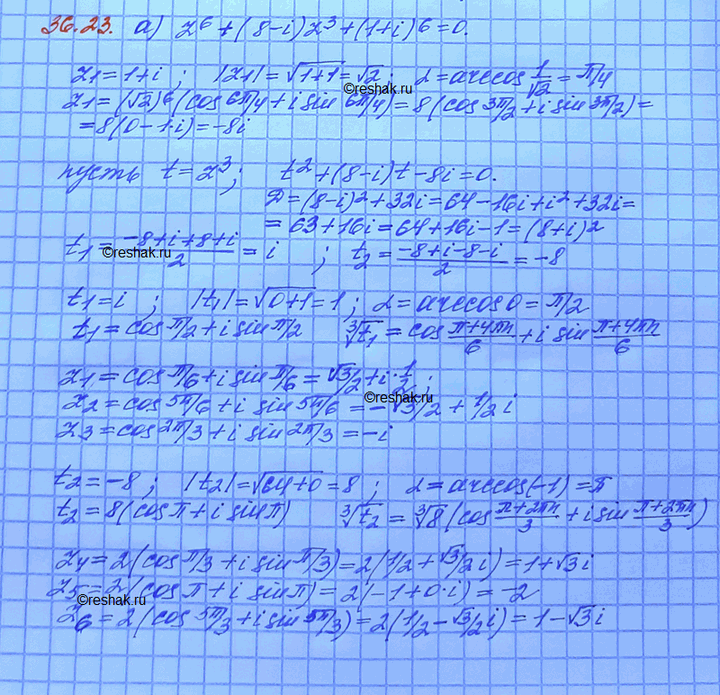 36.23. а) z⁶+(8-i)z³+(1+i)⁶=0.
z1=1+i ; |z1|=√1+1=√2 ; α=arccos 1/√2=π/4
©reshak.ru
z1=(√2)⁶(cos 6π/4+i sin 6π/4)=8(cos 3π/2+i sin 3π/2)=
=8(0-1·i)=-8i
пусть t=z³; t²+(8-i)t-8i=0.
D=(8-i)²+32i=64-16i+i²+32i=
=63+16i=64+16i-1=(8+i)²
t1=(-8+i+8+i)/2=i ; t2=(-8+i-8-i)/2=-8
©reshak.ru
t1=i ; |t1|=√0+1=1 ; α=arccos0=π/2
t1=cos π/2+i sin π/2 ∛t1=cos (π+4πn)/6+i sin (π+4πn)/6
z1=cos π/6+i sin π/6=√3/2+i·1/2 ;
©reshak.ru
z2=cos 5π/6+i sin 5π/6=-√3/2+1/2 i
z3=cos 2π/3+i sin 2π/3=-i
t2=-8 ; |t2|=√64+0=8 ; α=arccos(-1)=π
t2=8(cos π+i sin π) ∛t2=∛8(cos (π+2πn)/3+i sin (π+2πn)/3)
z4=2(cos π/3+i sin π/3)=2(1/2+√3/2 i)=1+√3 i
z5=2(cos π+i sin π)=2(-1+0·i)=-2
©reshak.ru
z6=2(cos 5π/3+i sin 5π/3)=2(1/2-√3/2 i)=1-√3 i